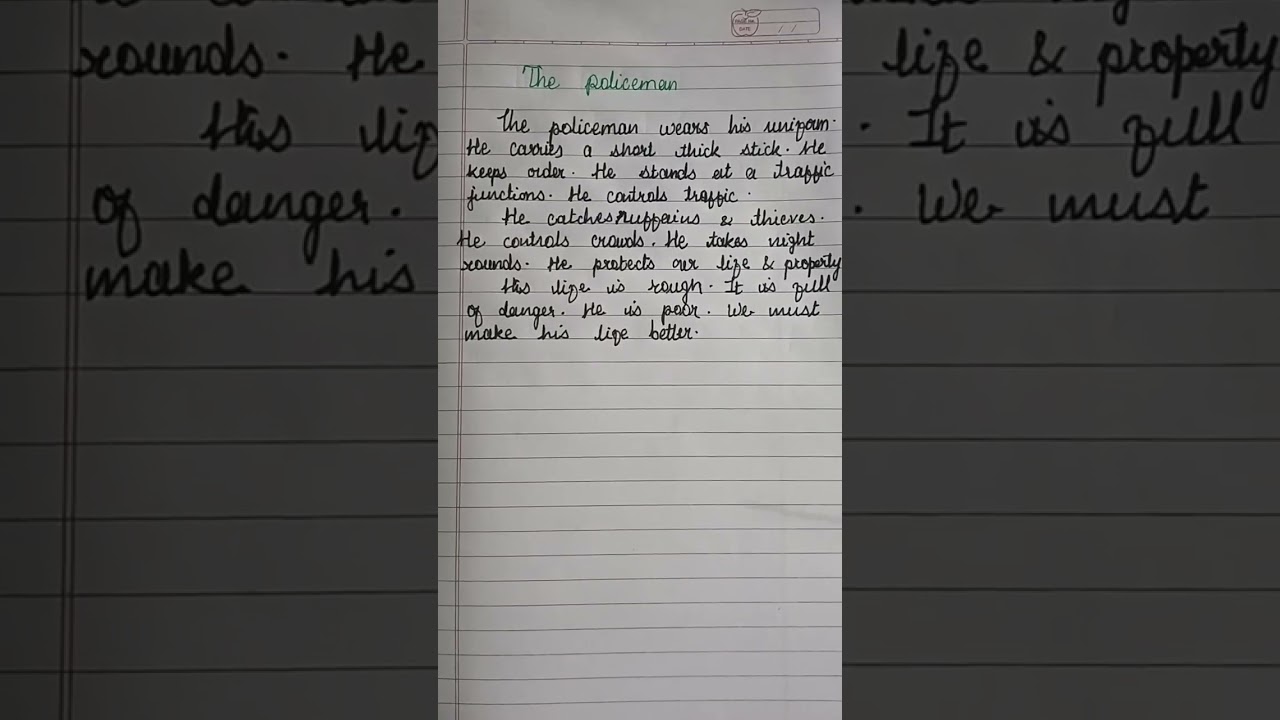 PAGE NO.
DATE
The policeman
The policeman wears his uniform.
He carries a short thick stick. He
keeps order. He stands at a traffic
junctions. He controls traffic.
He catches ruffains & thieves.
He controls crowds. He takes night
rounds. He protects our life & property
His life is rough. It is full
of danger. He is poor. We must
make his life better.